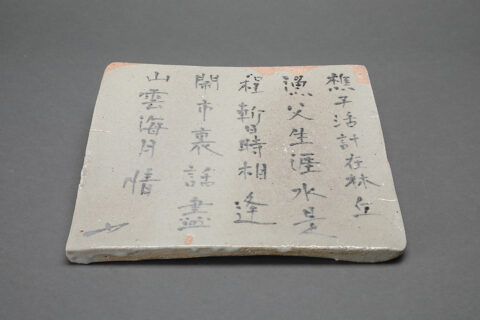 樵子活計在林丘
漁父生涯水是
程暫日時相逢
閙市裏話盡
山雲海月情